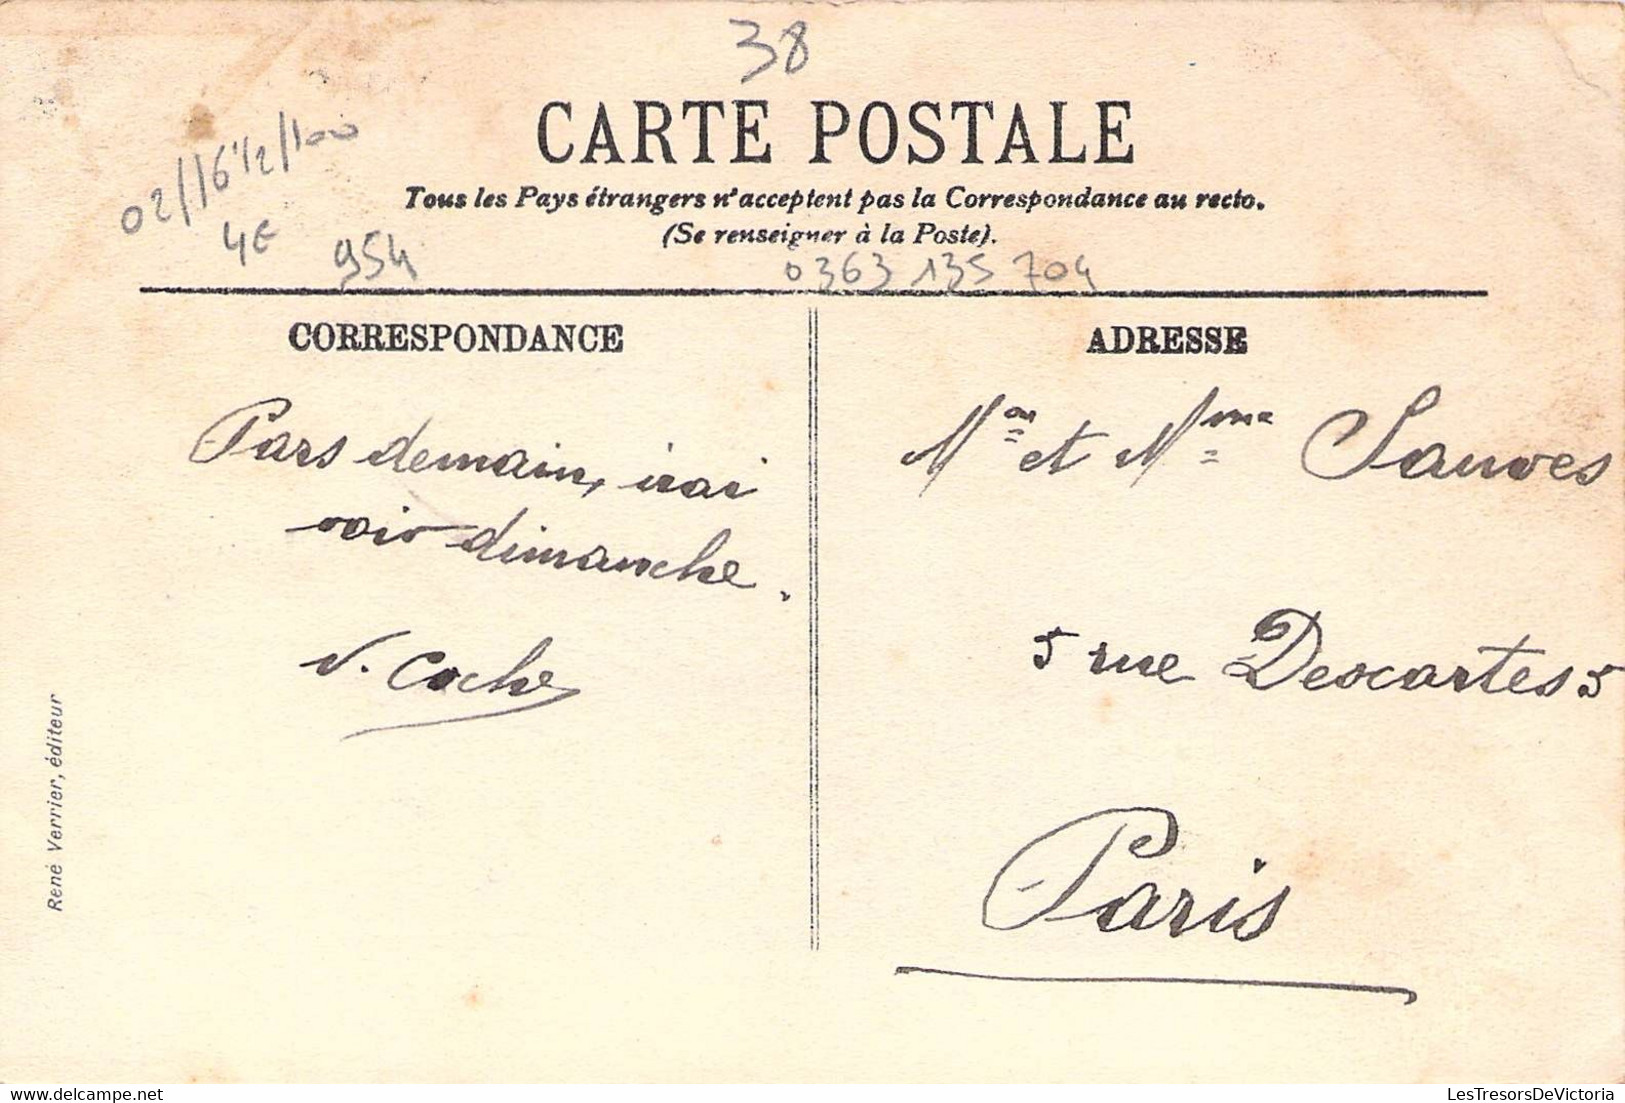 38
CARTE POSTALE
Tous les Pays étrangers n'acceptent pas la Correspondance au recto.
(Se renseigner à la Poste).
02/16 1/2/100
4€
954
0363 135 704
CORRESPONDANCE
Pars demain, irai
voir dimanche.
V. Coche
René Verrier, éditeur
ADRESSE
Mr et Mme Sauves
5 rue Descartes 5
Paris
LesTresorsDeVictoria